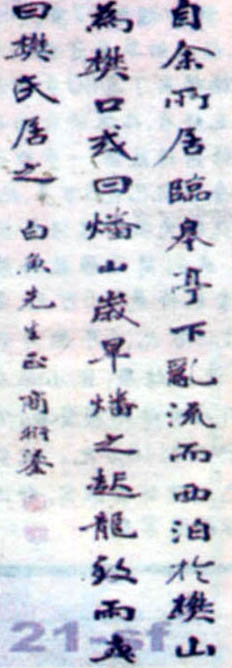 自余所居臨皋亭下亂流而西泊於樊山
為樊口或曰燔山歲旱燔之起龍致雨或
曰樊氏居之
白魚先生正 商衍鎏
21-sf